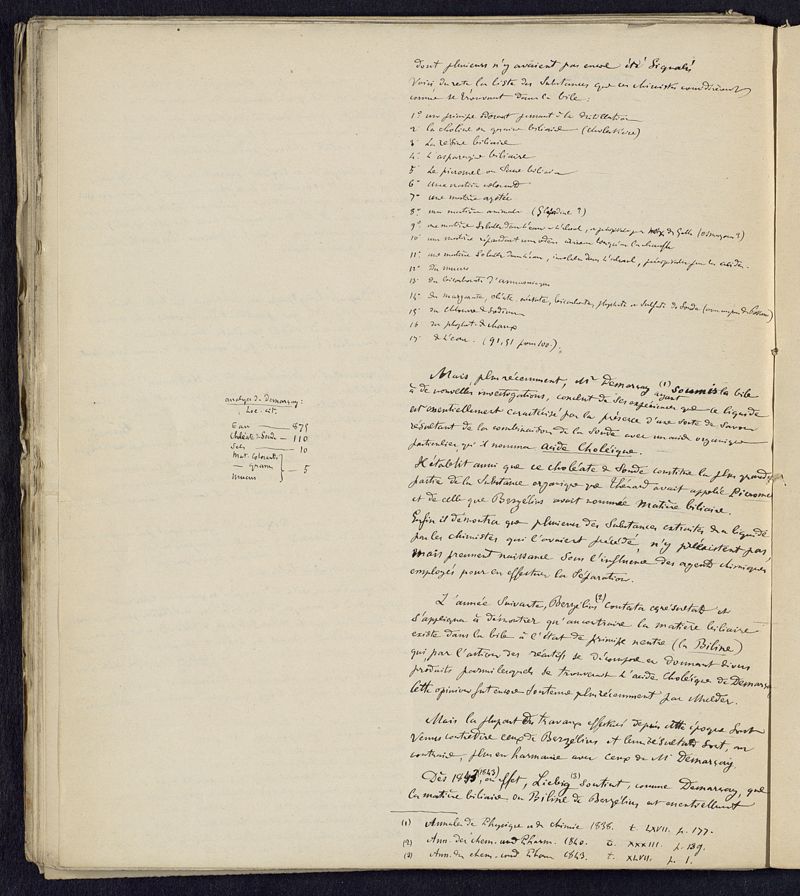 dont plusieurs n'y avaient pas encore été signalés
Voici du reste la liste des substances que ces chimistes considèrent
comme se trouvant dans la bile :
1° un principe odorant passant à la distillation
2 la choline ou graisse biliaire (cholestérine)
3 La résine biliaire
4° L'asparagine biliaire
5 Le picromel ou sucre biliaire
6° Une matière colorante
7° une matière azotée
8° une matière animale (Gliadine ?)
9° une matière soluble dans l'eau et l'alcool, et précipitable par noix de Galle (Osmazome ?)
10° une matière répandant une odeur lorsqu'on la chauffe
11° une matière soluble dans l'eau, insoluble dans l'alcool, précipitable par les acides.
12° du mucus
13 du bicarbonate d'ammoniaque
14° du margarate, oléate, acétate, bicarbonate, phosphate et sulfate de Soude (avec un peu de Potasse)
15 du chlorure de sodium
16 du phosphate de chaux
17 de l'eau. (91,51 pour 100.)
Mais, plus récemment, Mr Demarçay (1) ayant soumis la bile
à de nouvelles investigations, conclut de ses expériences que ce liquide
est essentiellement caractérisé par la présence d'une sorte de savon
résultant de la combinaison de la soude avec un acide organique
particulier qu'il nomma acide choléique.
Il établit aussi que ce choléate de soude constitue la plus grande
partie de la substance organique que Thénard avait appelée Picromel
et de celle que Berzélius avait nommée matière biliaire.
Enfin il démontra que plusieurs des substances extraites de ce liquide
par les chimistes qui l'avaient précédé, n'y préexistent pas
mais prennent naissance sous l'influence des agents chimiques
employés pour en effectuer la séparation.
L'année suivante, Berzélius (2) contesta ces résultats et
s'appliqua à démontrer qu'au contraire la matière biliaire
existe dans la bile à l'état de principe neutre (la Biline)
qui par l'action des réactifs se décompose en donnant divers
produits parmi lesquels se trouverait l'acide choléique de Demarçay
Cette opinion fut encore soutenue plus récemment par Mulder.
Mais la plupart des travaux effectués depuis cette époque sont
venus contredire ceux de Berzélius et leurs résultats sont, au
contraire, plus en harmonie avec ceux de Mr Demarçay.
Dès 1843 (1843), en effet, Liebig (3) soutint, comme Demarçay, que
la matière biliaire ou Biline de Berzélius est essentiellement
(1) Annales de Physique et de chimie 1838. t. LXVII. p. 177.
(2) Ann. der chem. und Pharm. 1840. t. XXXIII. p. 139.
(3) Ann. der chem. und Pharm 1843. t. XLVII. p. 1.
analyse de Demarçay :
Loc. cit.
Eau — 875
Choléate de Soude — 110
Sels — 10
Mat. colorante
— grasse — 5
mucus